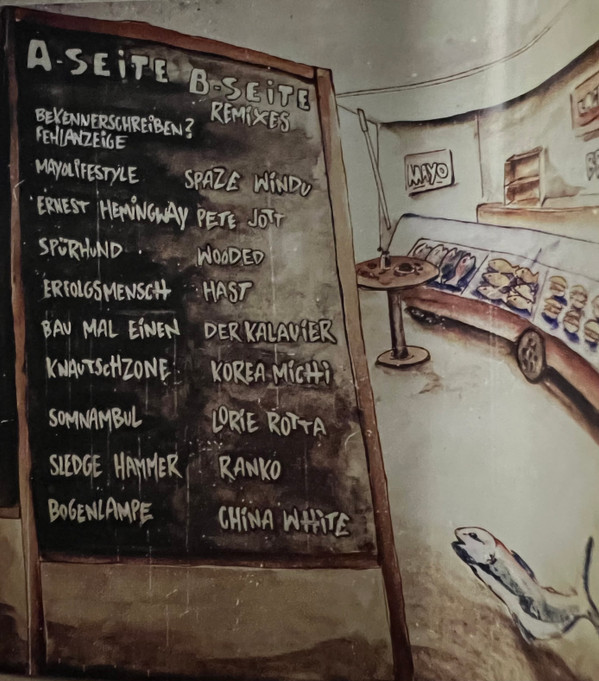 A-SEiTE
BEKENNERSCHREiBEN?
FEHlANZEiGE
MAYOLiFESTYLE
ERNEST HEMiNGWAY
SPüRHUND
ERFOLGSMENSCH
BAU MAL EiNEN
KNAUTSCHZONE
SOMNAMBUL
SLEDGE HAMMER
BOGENLAMPE
B-SEiTE
REMiXES
SPAZE WiNDU
PETE JOTT
WOODED
HAST
DER KALAVIER
KOREA MiCHi
LORiE ROTTA
RANKO
CHiNA WHiTE
MAYO